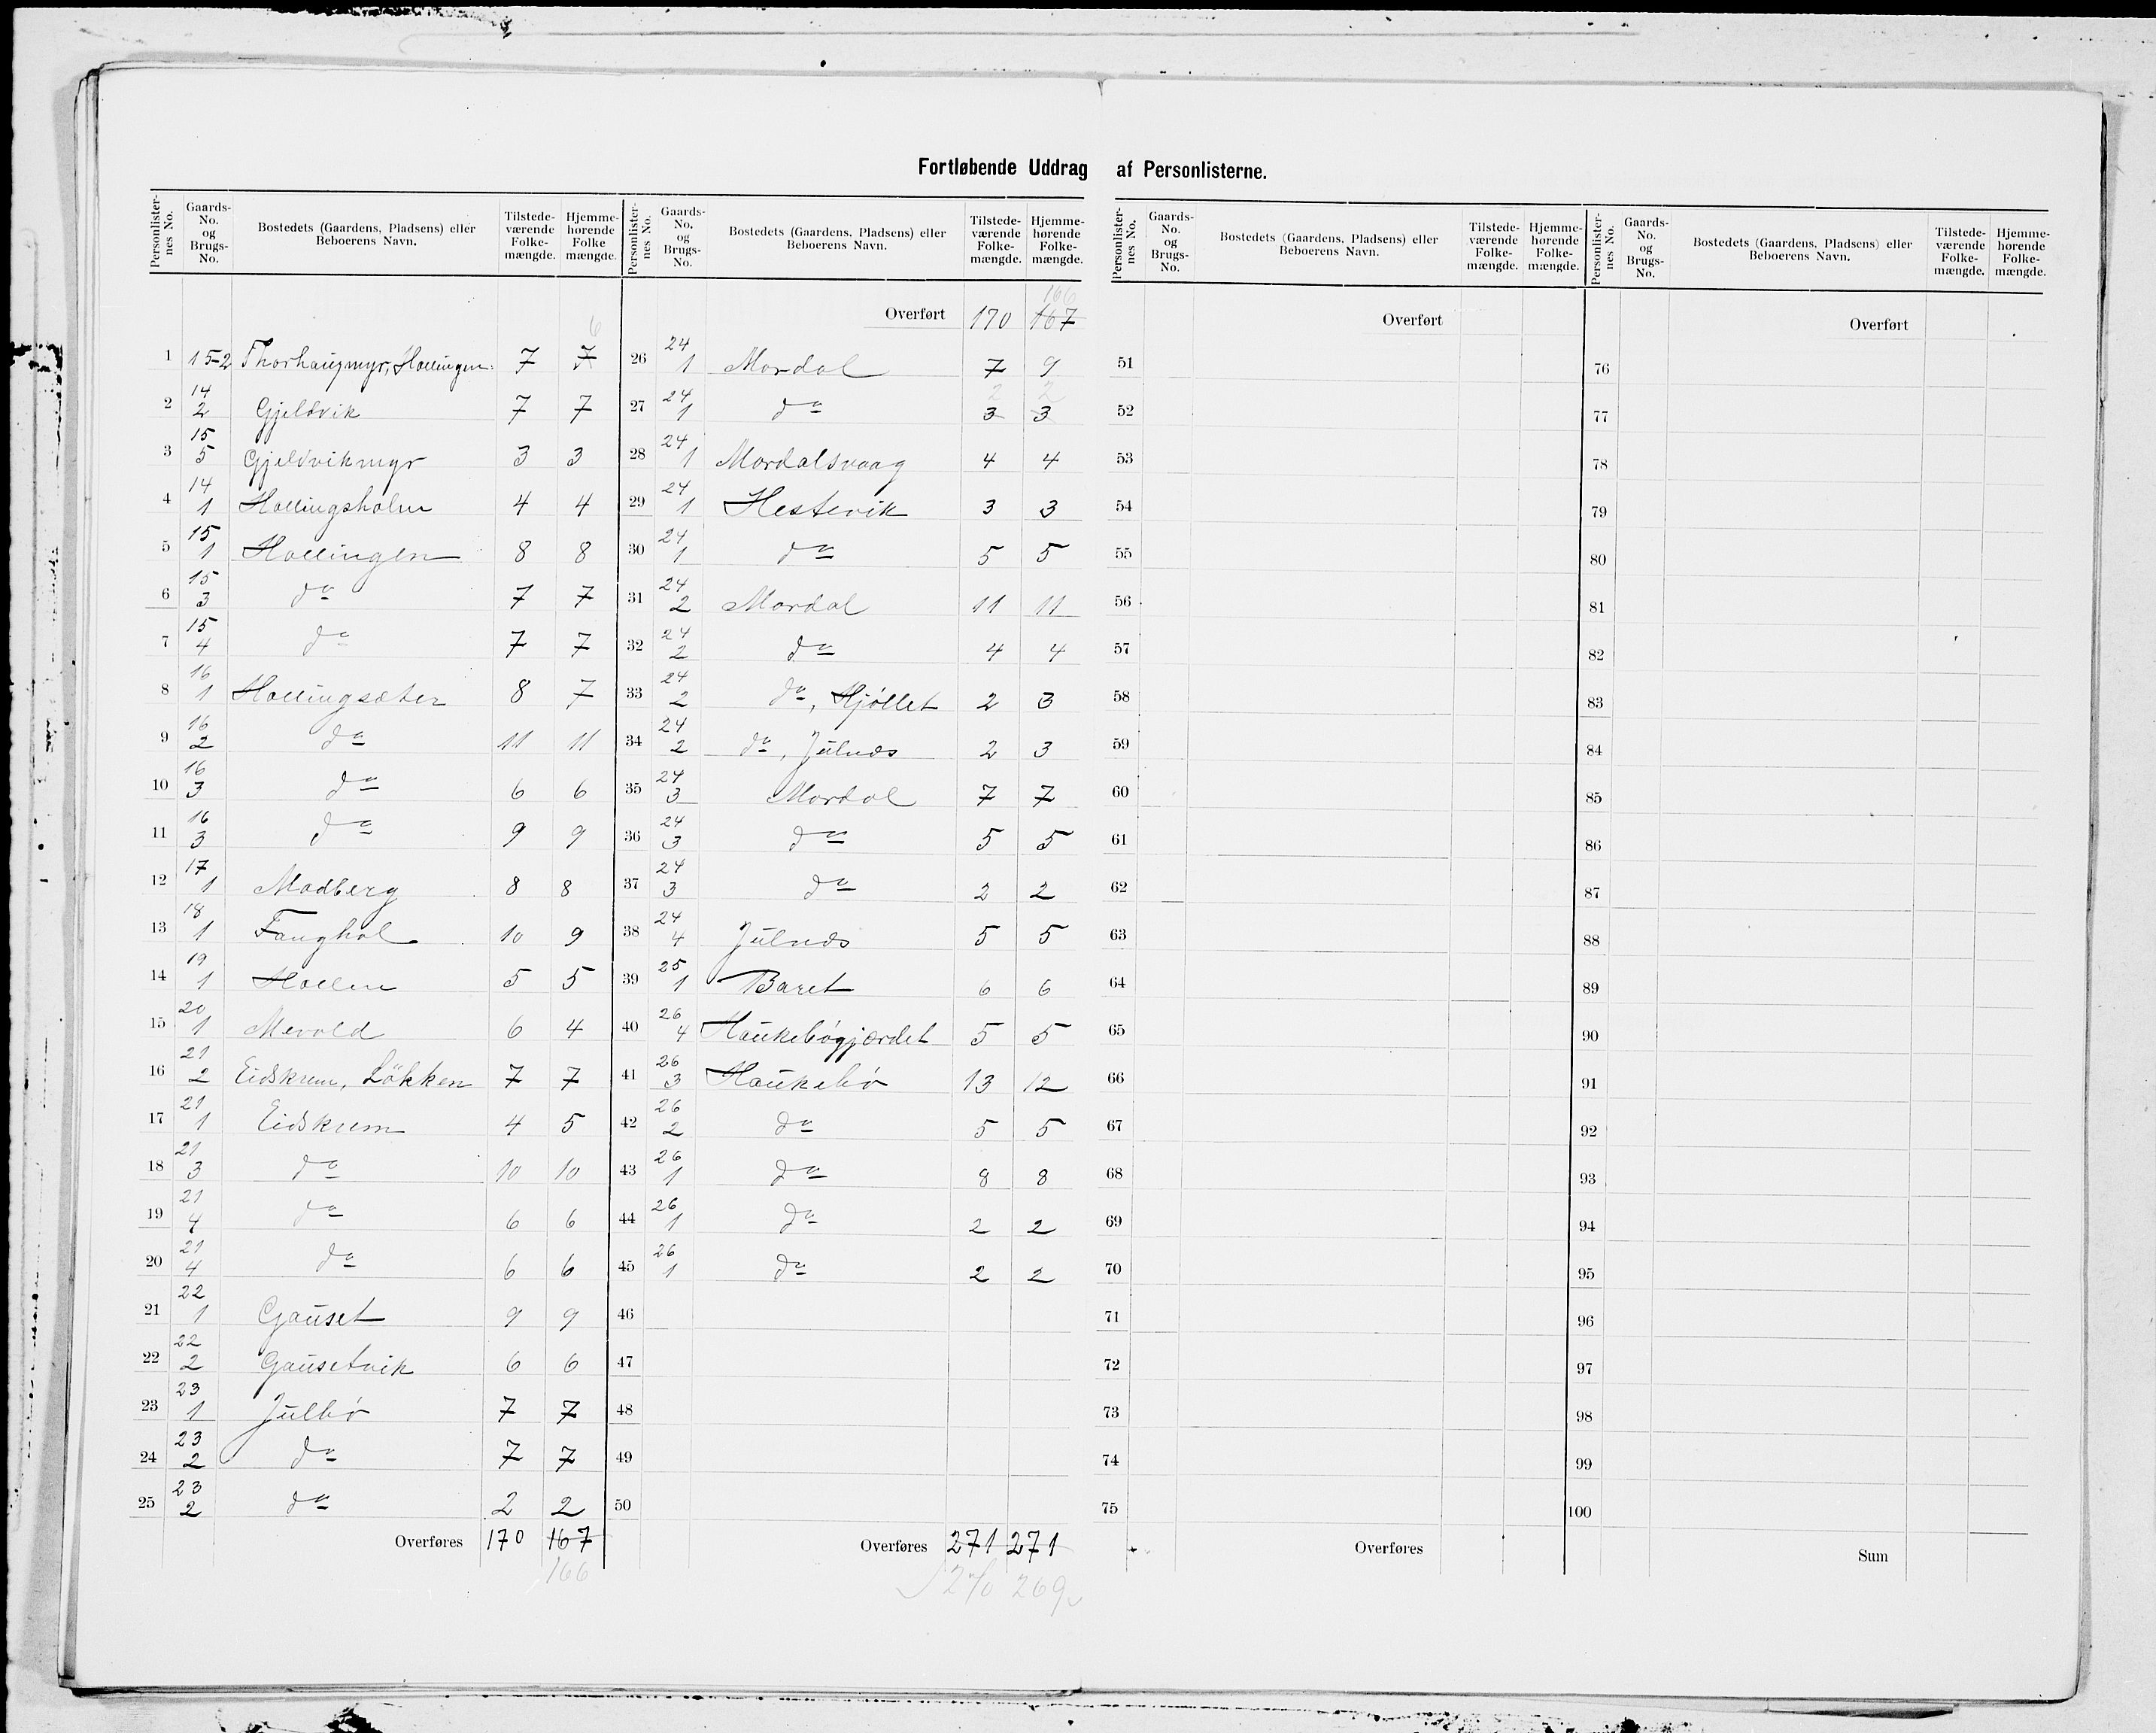 Fortløbende Uddrag af Personlisterne.
Personlisternes No. Gaards-No. og Brugs-No. Bostedets (Gaardens, Pladsens) eller Beboerens Navn. Tilstedeværende Folkemængde. Hjemmehørende Folkemængde.
6
1 15-2 Thorhaugmyr, Hollingen 7 7
2 14 2 Gjeldvik 7 7
3 15 5 Gjeldvikmyr 3 3
4 14 1 Hollingsholm 4 4
5 15 1 Hollingen 8 8
6 15 3 do 7 7
7 15 4 do 7 7
8 16 1 Hollingsæter 8 7
9 16 2 do 11 11
10 16 3 do 6 6
11 16 3 do 9 9
12 17 1 Madberg 8 8
13 18 1 Fanghol 10 9
14 19 1 Hollen 5 5
15 20 1 Mevold 6 4
16 21 2 Eidskrem, Løkken 7 7
17 21 1 Eidskrem 4 5
18 21 3 do 10 10
19 21 4 do 6 6
20 21 4 do 6 6
21 22 1 Gauset 9 9
22 22 2 Gausetvik 6 6
23 23 1 Julbø 7 7
24 23 2 do 7 7
25 23 2 do 2 2
Overføres 170 167
166
Personlisternes No. Gaards-No. og Brugs-No. Bostedets (Gaardens, Pladsens) eller Beboerens Navn. Tilstedeværende Folkemængde. Hjemmehørende Folkemængde.
166
Overført 170 167
26 24 1 Mordal 7 9
2 2
27 24 1 do 3 3
28 24 1 Mordalsvaag 4 4
29 24 1 Hestevik 3 3
30 24 1 do 5 5
31 24 2 Mordal 11 11
32 24 2 do 4 4
33 24 2 do, Hjøllet 2 3
34 24 2 do, Julnes 2 3
35 24 3 Mordal 7 7
36 24 3 do 5 5
37 24 3 do 2 2
38 24 4 Julnes 5 5
39 25 1 Baret 6 6
40 26 4 Haukebøgjærdet 5 5
41 26 3 Haukebø 13 12
42 26 2 do 5 5
43 26 1 do 8 8
44 26 1 do 2 2
45 26 1 do 2 2
46
47
48
49
50
Overføres 271 271
270 269
Personlisternes No. Gaards-No. og Brugs-No. Bostedets (Gaardens, Pladsens) eller Beboerens Navn. Tilstedeværende Folkemængde. Hjemmehørende Folkemængde.
Overført
51
52
53
54
55
56
57
58
59
60
61
62
63
64
65
66
67
68
69
70
71
72
73
74
75
Overføres
Personlisternes No. Gaards-No. og Brugs-No. Bostedets (Gaardens, Pladsens) eller Beboerens Navn. Tilstedeværende Folkemængde. Hjemmehørende Folkemængde.
Overført
76
77
78
79
80
81
82
83
84
85
86
87
88
89
90
91
92
93
94
95
96
97
98
99
100
Sum